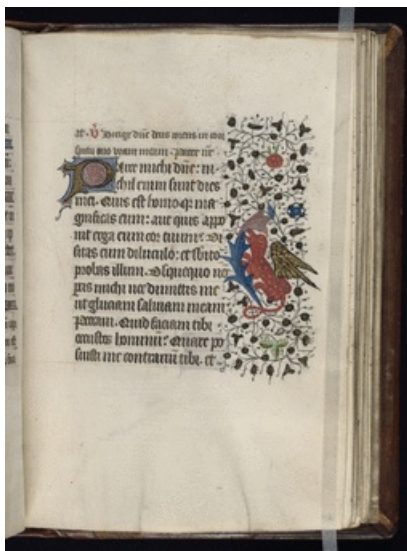 ℣ Dirige dñe deus meus in con
spectu tuo viam meam. Pater nr̄
Parce michi dñe: ni
chil enim sunt dies
mei. Quis est homo qr ma
gnificas eum: aut quid appo
nis erga eum cor tuum? Vi
sitas eum diluculo: et subito
probas illum. Usquequo nō
parcis michi nec dimittis me
ut gluciam salivam meam
Peccavi. Quid faciam tibi
o custos hominum? Quare po
suisti me contrariū tibi. et